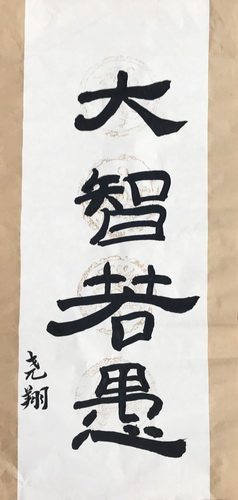 大智若愚
尧翔